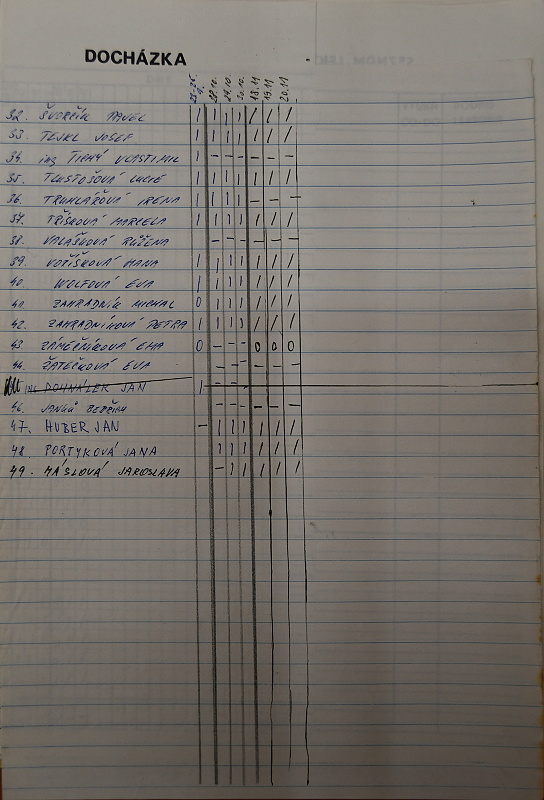 DOCHÁZKA
28.10. 29.10. 30.10. 18.11 19.11 20.11
32. ŠVORČÍK PAVEL | | | | / / /
33. TEJKL JOSEF | | | | / / /
34. ing TICHÝ VLASTIMIL | - - - - - -
35. TLUSTOŠOVÁ LUCIE | | | | / / /
36. TRUHLÁŘOVÁ IRENA | | | | - - -
37. TŘÍSKOVÁ MARCELA | | | | / / /
38. VALÁŠKOVÁ RŮŽENA - - - - - -
39. VOŘÍŠKOVÁ HANA | | | | / / /
40. WOLFOVÁ EVA | | | | / / /
41. ZAHRADNÍK MICHAL 0 | | | / / /
42. ZAHRADNÍKOVÁ PETRA | | | | / / /
43. ZÁMEČNÍKOVÁ EMA 0 - - - 0 0 0
44. ŽATEČKOVÁ EVA - - - - - -
ing DOHNÁLEK JAN | - -
46. JANKŮ BEDŘICH - - - - - -
47. HUBER JAN - | | | / / /
48. PORTYKOVÁ JANA | | | / / /
49. MÁSLOVÁ JAROSLAVA - | | / / /